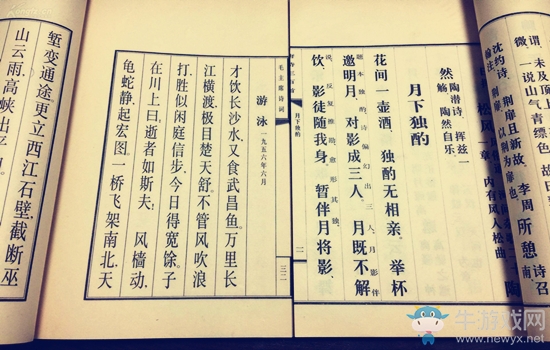 谓，未及顶上
微，一说山气青缥色
李周所憩
沈约诗，荆扉且新故。
松风一章
内有风入松曲
陶潜诗，挥兹一
然觞，陶然自乐
月下独酌
花间一壶酒，独酌无相亲。举杯
邀明月，对影成三人。月既不解
题本独酌，诗偏幻出三人，月影伴
说，反复推勘，愈形其独。
饮，影徒随我身。暂伴月将影，
月下独酌
二
毛主席诗词
三二
游泳
一九五六年六月
才饮长沙水，又食武昌鱼。万里长
江横渡，极目楚天舒。不管风吹浪
打，胜似闲庭信步，今日得宽馀。子
在川上曰：逝者如斯夫！风樯动，
龟蛇静，起宏图。一桥飞架南北，天
堑变通途。更立西江石壁，截断巫
山云雨，高峡出平
牛游戏网
www.newyx.net